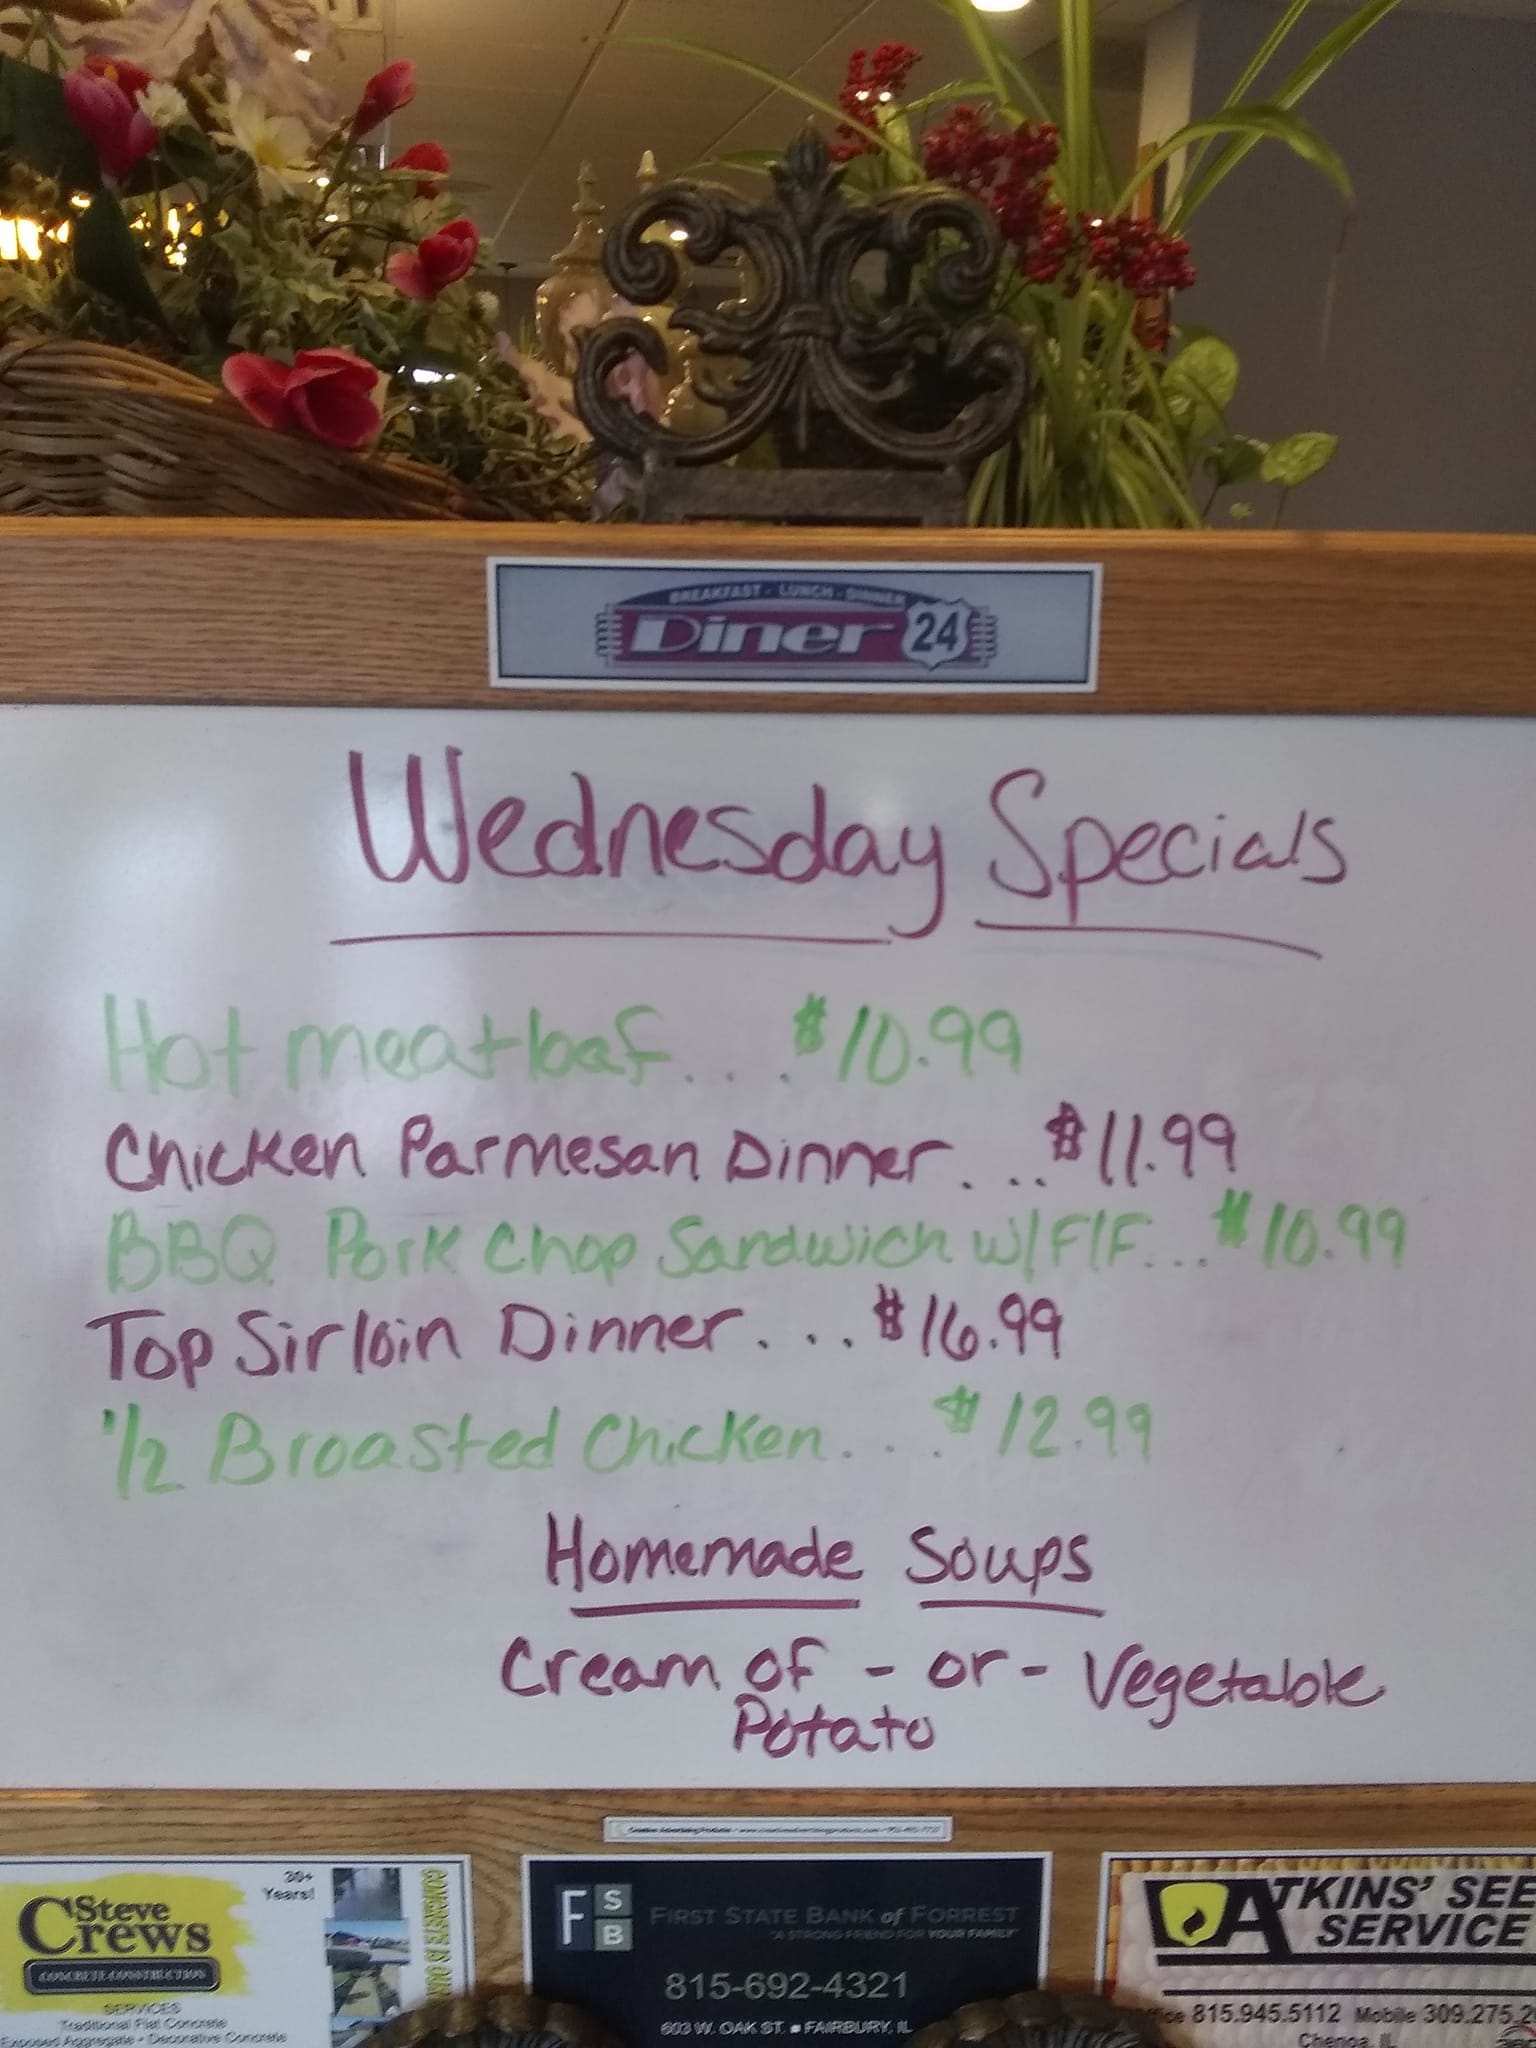 BREAKFAST - LUNCH - DINNER
Diner 24
Wednesday Specials
Hot meatloaf... $10.99
Chicken Parmesan Dinner... $11.99
BBQ Pork Chop Sandwich w/ F/F... $10.99
Top Sirloin Dinner... $16.99
1/2 Broasted Chicken... $12.99
Homemade Soups
Cream of - or - Vegetable
Potato
Steve
Crews
CONCRETE CONSTRUCTION
30+
Years!
SERVICES
Traditional Flat Concrete
Exposed Aggregate - Decorative Concrete
CONCRETE IS OUR
F S B
FIRST STATE BANK of FORREST
"A STRONG FRIEND FOR YOUR FAMILY"
815-692-4321
603 W. OAK ST. ▪ FAIRBURY, IL
ATKINS' SEE
SERVICE
815.945.5112 Mobile 309.275.2
Chenoa, IL